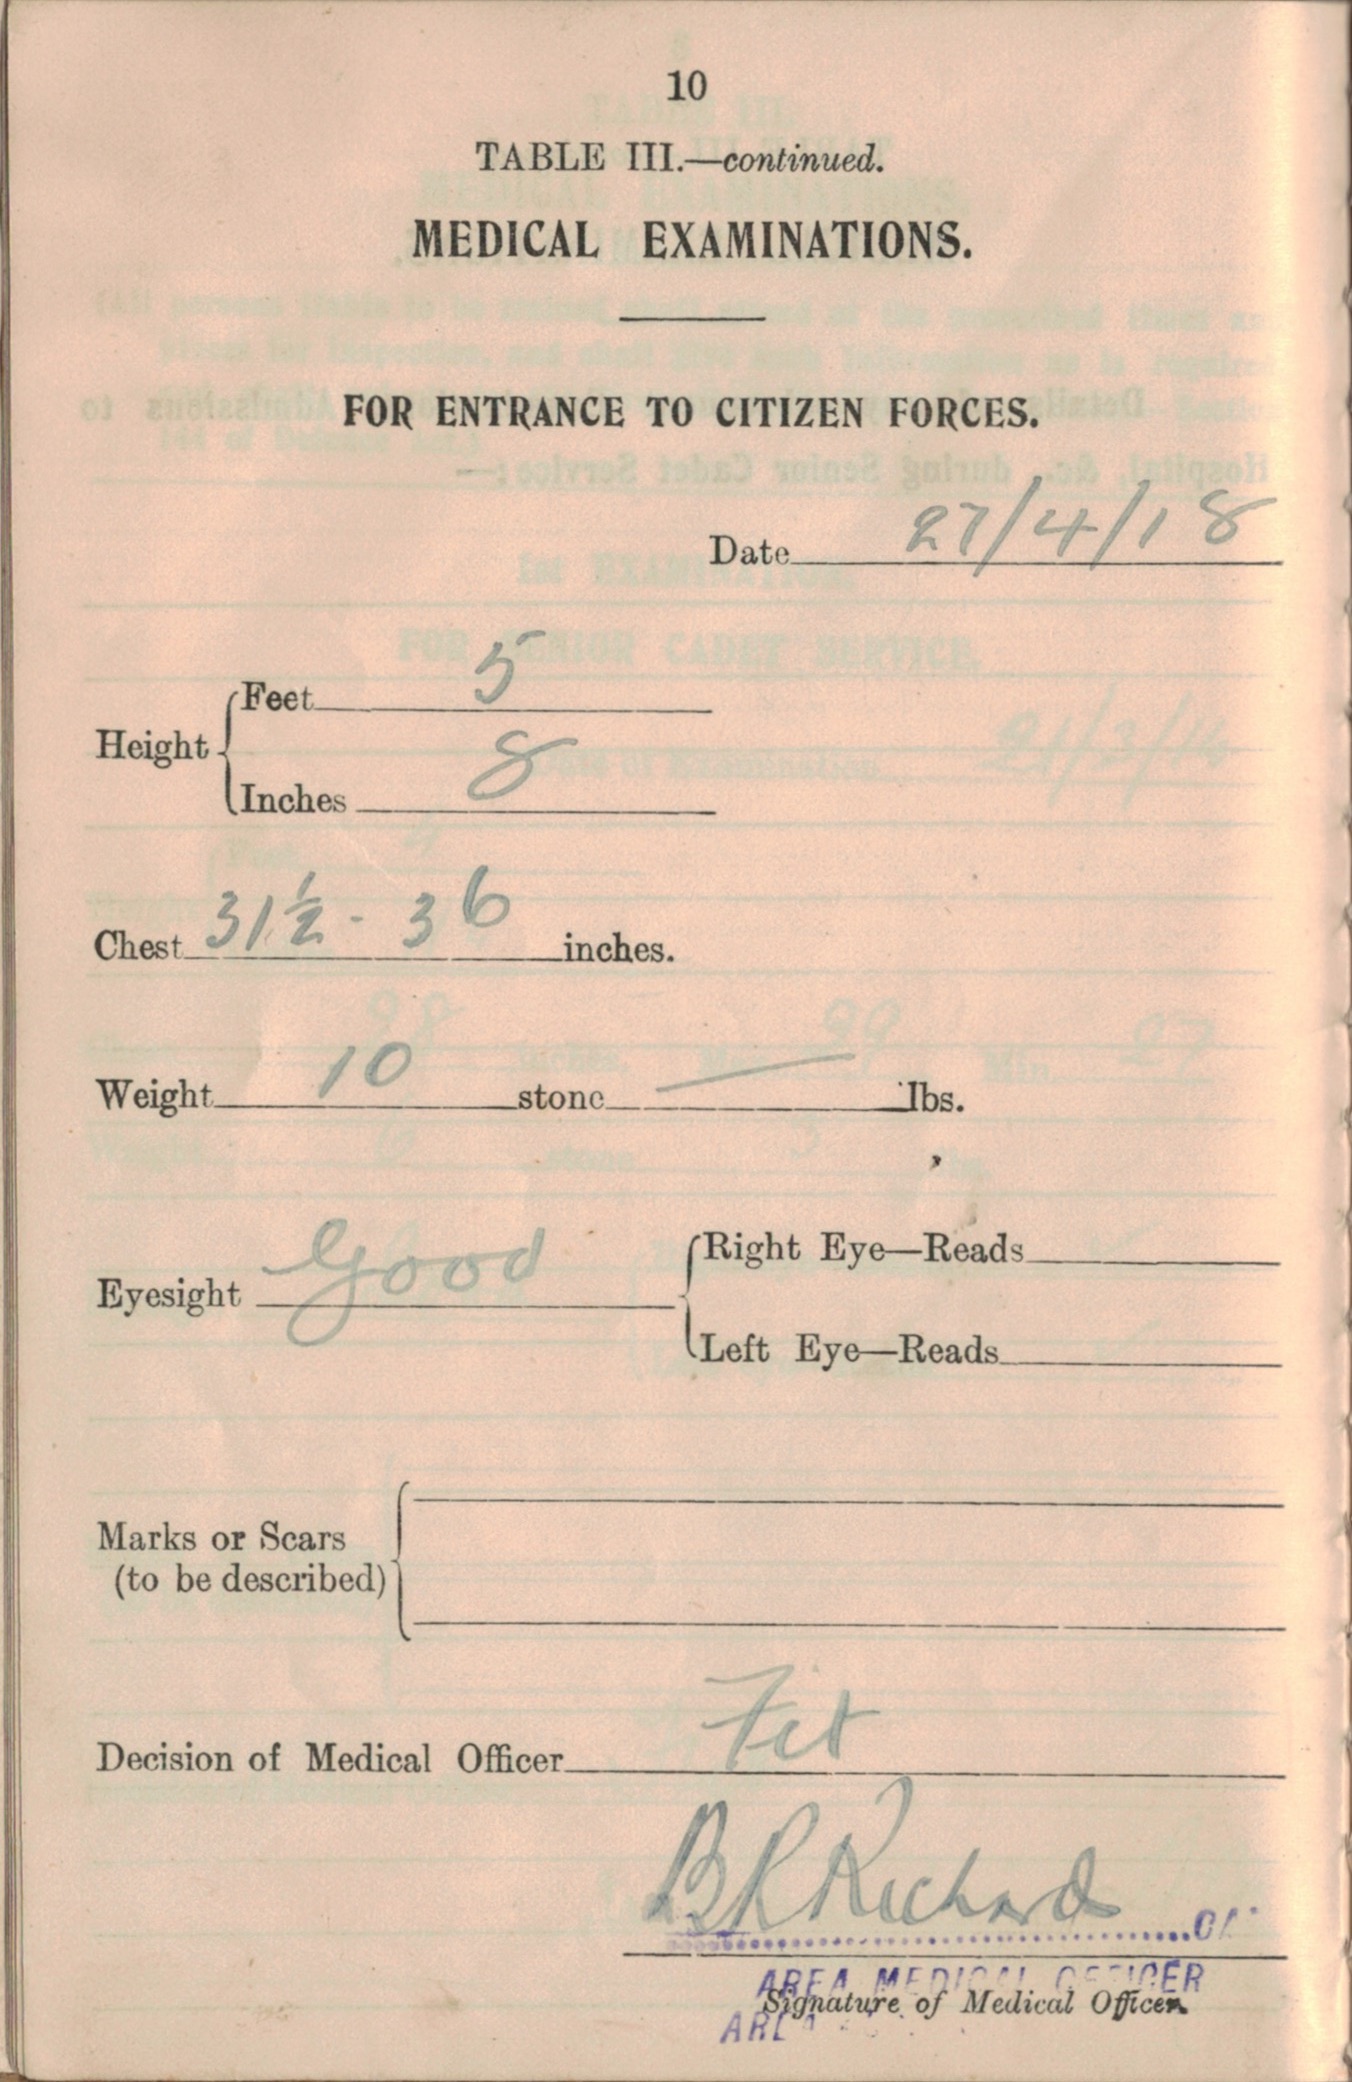 10
TABLE III.—continued.
MEDICAL EXAMINATIONS.
FOR ENTRANCE TO CITIZEN FORCES.
Date 27/4/18
Height
Feet 5
Inches 8
Chest 31½ - 36 inches.
Weight 10 stone — lbs.
Eyesight Good
Right Eye—Reads
Left Eye—Reads
Marks or Scars
(to be described)
Decision of Medical Officer Fit
B R Richard
AREA MEDICAL OFFICER
Signature of Medical Officer.